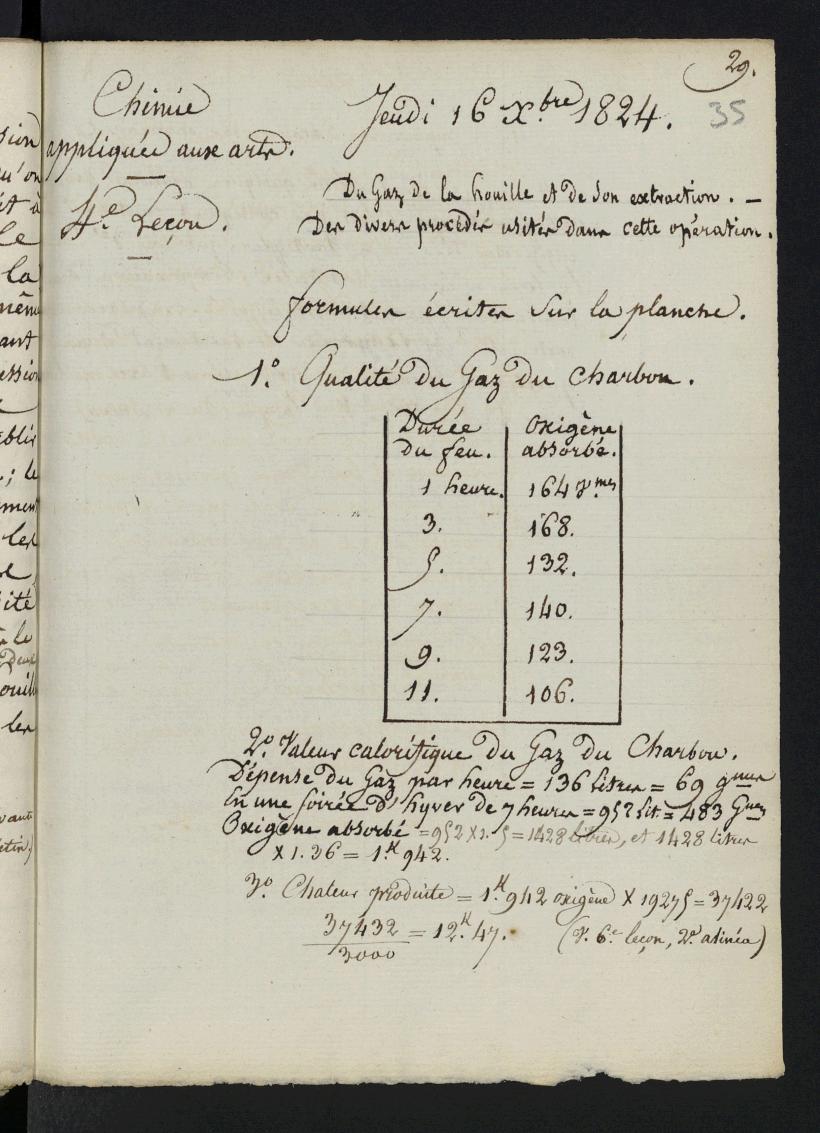 29.
35
Chimie
appliquée aux arts.
4.e Leçon.
Jeudi 16 X.bre 1824.
Du Gaz de la houille et de son extraction. —
Des divers procédés usités dans cette opération.
formules écrites sur la planche.
1.o Qualité du Gaz du charbon.
Durée Oxigène
du feu. absorbé.
1 heure. 164 g.mes
3. 168.
5. 132.
7. 140.
9. 123.
11. 106.
2.o Valeur calorifique du Gaz du Charbon.
Dépense du Gaz par heure = 136 litres = 69 gmes
En une soirée d'hyver de 7 heures = 952 lit = 483 Gmes
Oxigène absorbé = 952 X 1.5 = 1428 litres, et 1428 litres
X 1.36 = 1.K 942.
3.o Chaleur produite = 1.K 942 oxigène X 19275 = 37422
37432 / 3000 = 12.K 47. (V. 6.e leçon, 2.e alinéa)
sion
qu'on
it à
le
la
même
ant
ession
ablir
; le
ement
les
ité
le
ouill
les